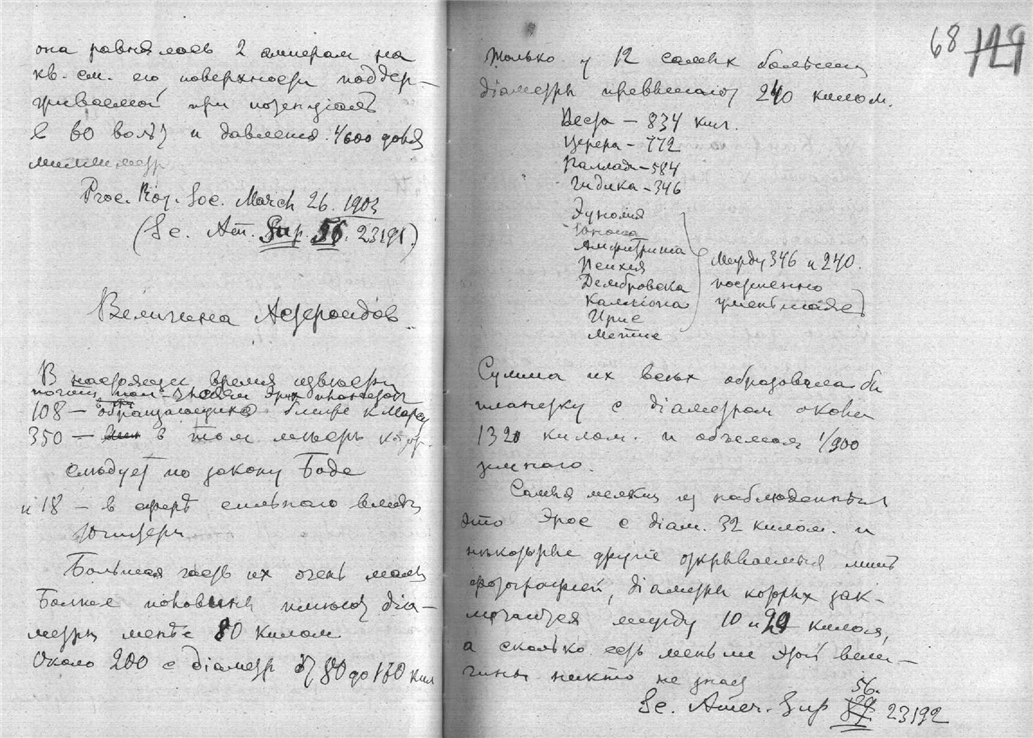 она равнялась 2 амперам на
кв. см. его поверхности поддер-
живаемой при потенціалѣ
в 60 вольт и давленіи
миллиметр
Proc. Roy. Soc. March 26. 1903
(Sc. Am. Sup. 56. 23191.)
Величина Астероидов
В настоящее время извѣстны
108 — обращающихся ближе к Марсу
350 — в том мѣстѣ
слѣдует по закону Боде
и 18 — в сферѣ сильного
Юпитера
Большая часть их очень малы
Болѣе половины имеют діа-
метр менѣе 80 килом.
Около 200 с діаметр от 80 до 160 кил
68 129
Только у 12 самых больших
діаметры превышают 240 килом.
Веста — 834 кил.
Церера — 772
Паллада — 584
Гидика — 346
Эуномія
Юнона
Амфитрита
Психея
Дембровска
Каллиопа
Ирис
Метис
Между 346 и 240.
постепенно
Сумма их всѣх образовала бы
планетку с діаметром около
1320 килом. и объемом 1/900
земного.
Самыя мелкія из наблюденных
это Эрос с діам. 32 килом. и
нѣкоторые другіе открываемыя лишь
фотографіей, діаметры которых зак-
лючаются между 10 и 20 килом,
а сколько есть меньше этой вели-
чины никто не знает
56.
Sc. Amer. Sup 23192